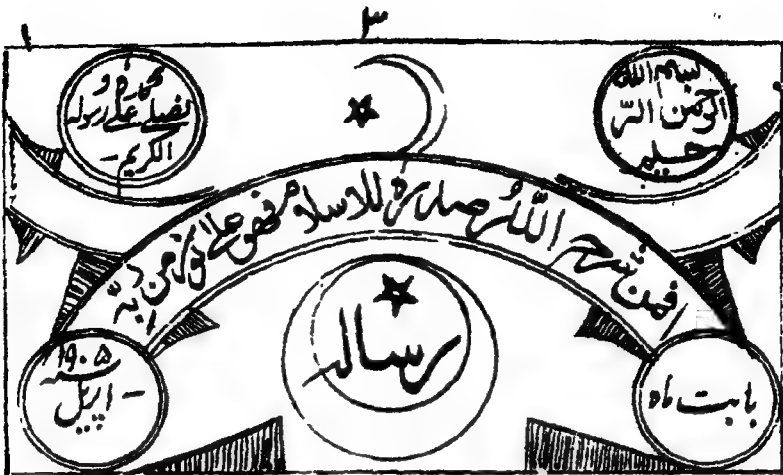 ۳
بسم اللہ
الرحمن الر
حیم
نحمدہ و
نصلے علےٰ رسولہ
الکریم -
افمن شرح اللہ صدرہ للاسلام فھو علےٰ نور من ربہ
رسالہ
بابت ماہ
۱۹۰۵
سنہ
- اپریل